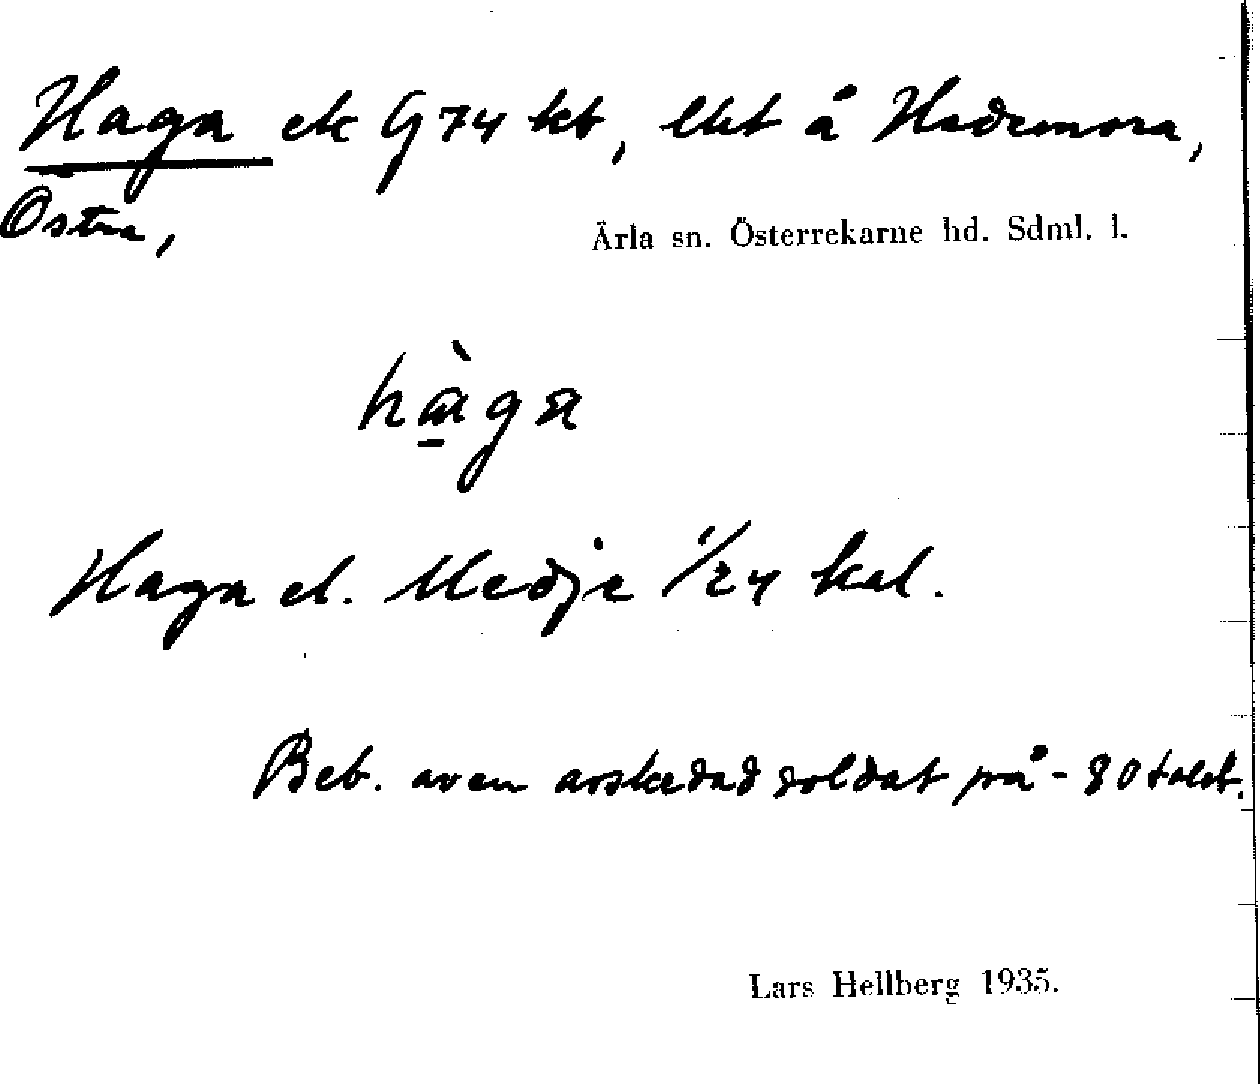 Haga ek G74 kb, lht å Hademora,
Östra,
Ärla sn. Österrekarne hd. Sdml. l.
hàga
Haga el. Medje 1/24 kal.
Beb. av en avskedad soldat på - 80 talet.
Lars Hellberg 1935.